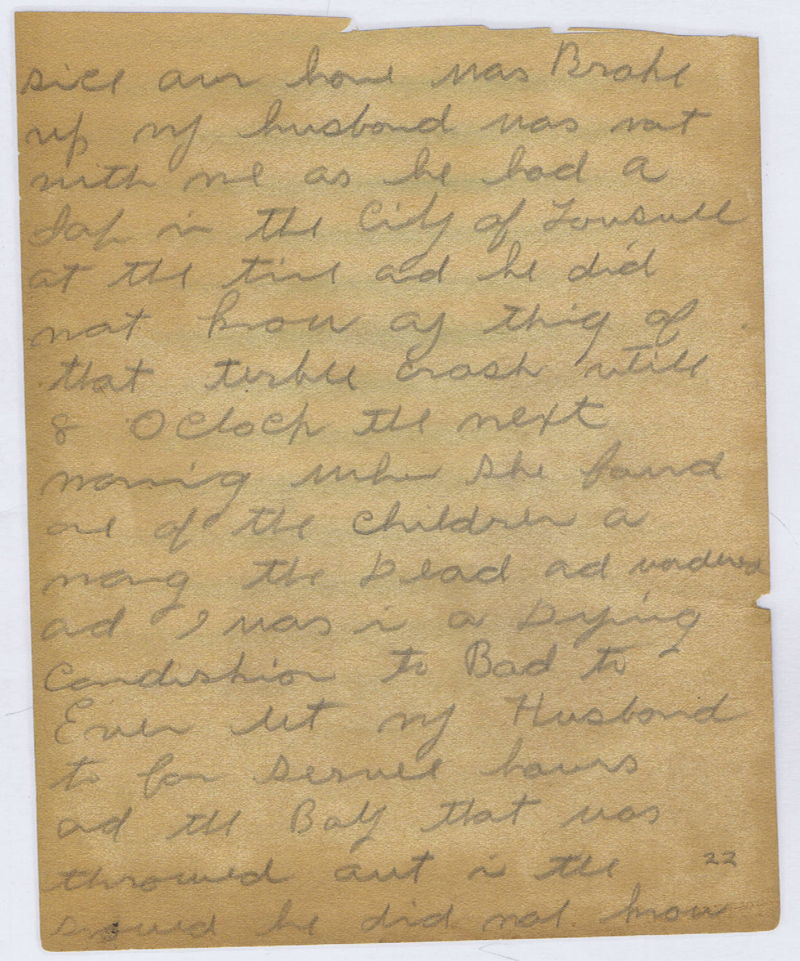 sice our home was Brake
up my husbond was not
with me as he had a
Job in the City of Lousvell
at the time ad he did
not know ay thig of
that terble crash utill
8 OClock the next
morning when she found
one of the children a
mong the Dead ad
ad I was in a Dying
Condishion to Bad to
Even let my Husbond
to for servel hours
ad the Baby that was
throwed out in the
he did not know
22